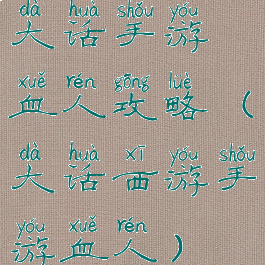 dà huà shǒu yóu
大话手游
xuě rén gōng lüè
血人攻略（
dà huà xī yóu shǒu
大话西游手
yóu xuě rén
游血人）